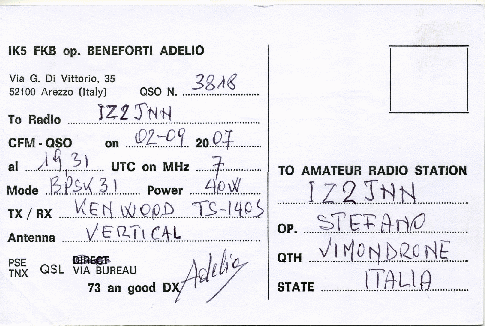 IK5 FKB op. BENEFORTI ADELIO
Via G. Di Vittorio, 35
52100 Arezzo (Italy) QSO N. 3818
To Radio IZ2JNN
CFM - QSO on 02-09 2007
al 19,31 UTC on MHz 7
Mode BPSK31 Power 40W
TX / RX KENWOOD TS-140S
Antenna VERTICAL
PSE
TNX QSL DIRECT
VIA BUREAU
73 an good DX Adelio
TO AMATEUR RADIO STATION
IZ2JNN
OP. STEFANO
QTH VIMONDRONE
STATE ITALIA